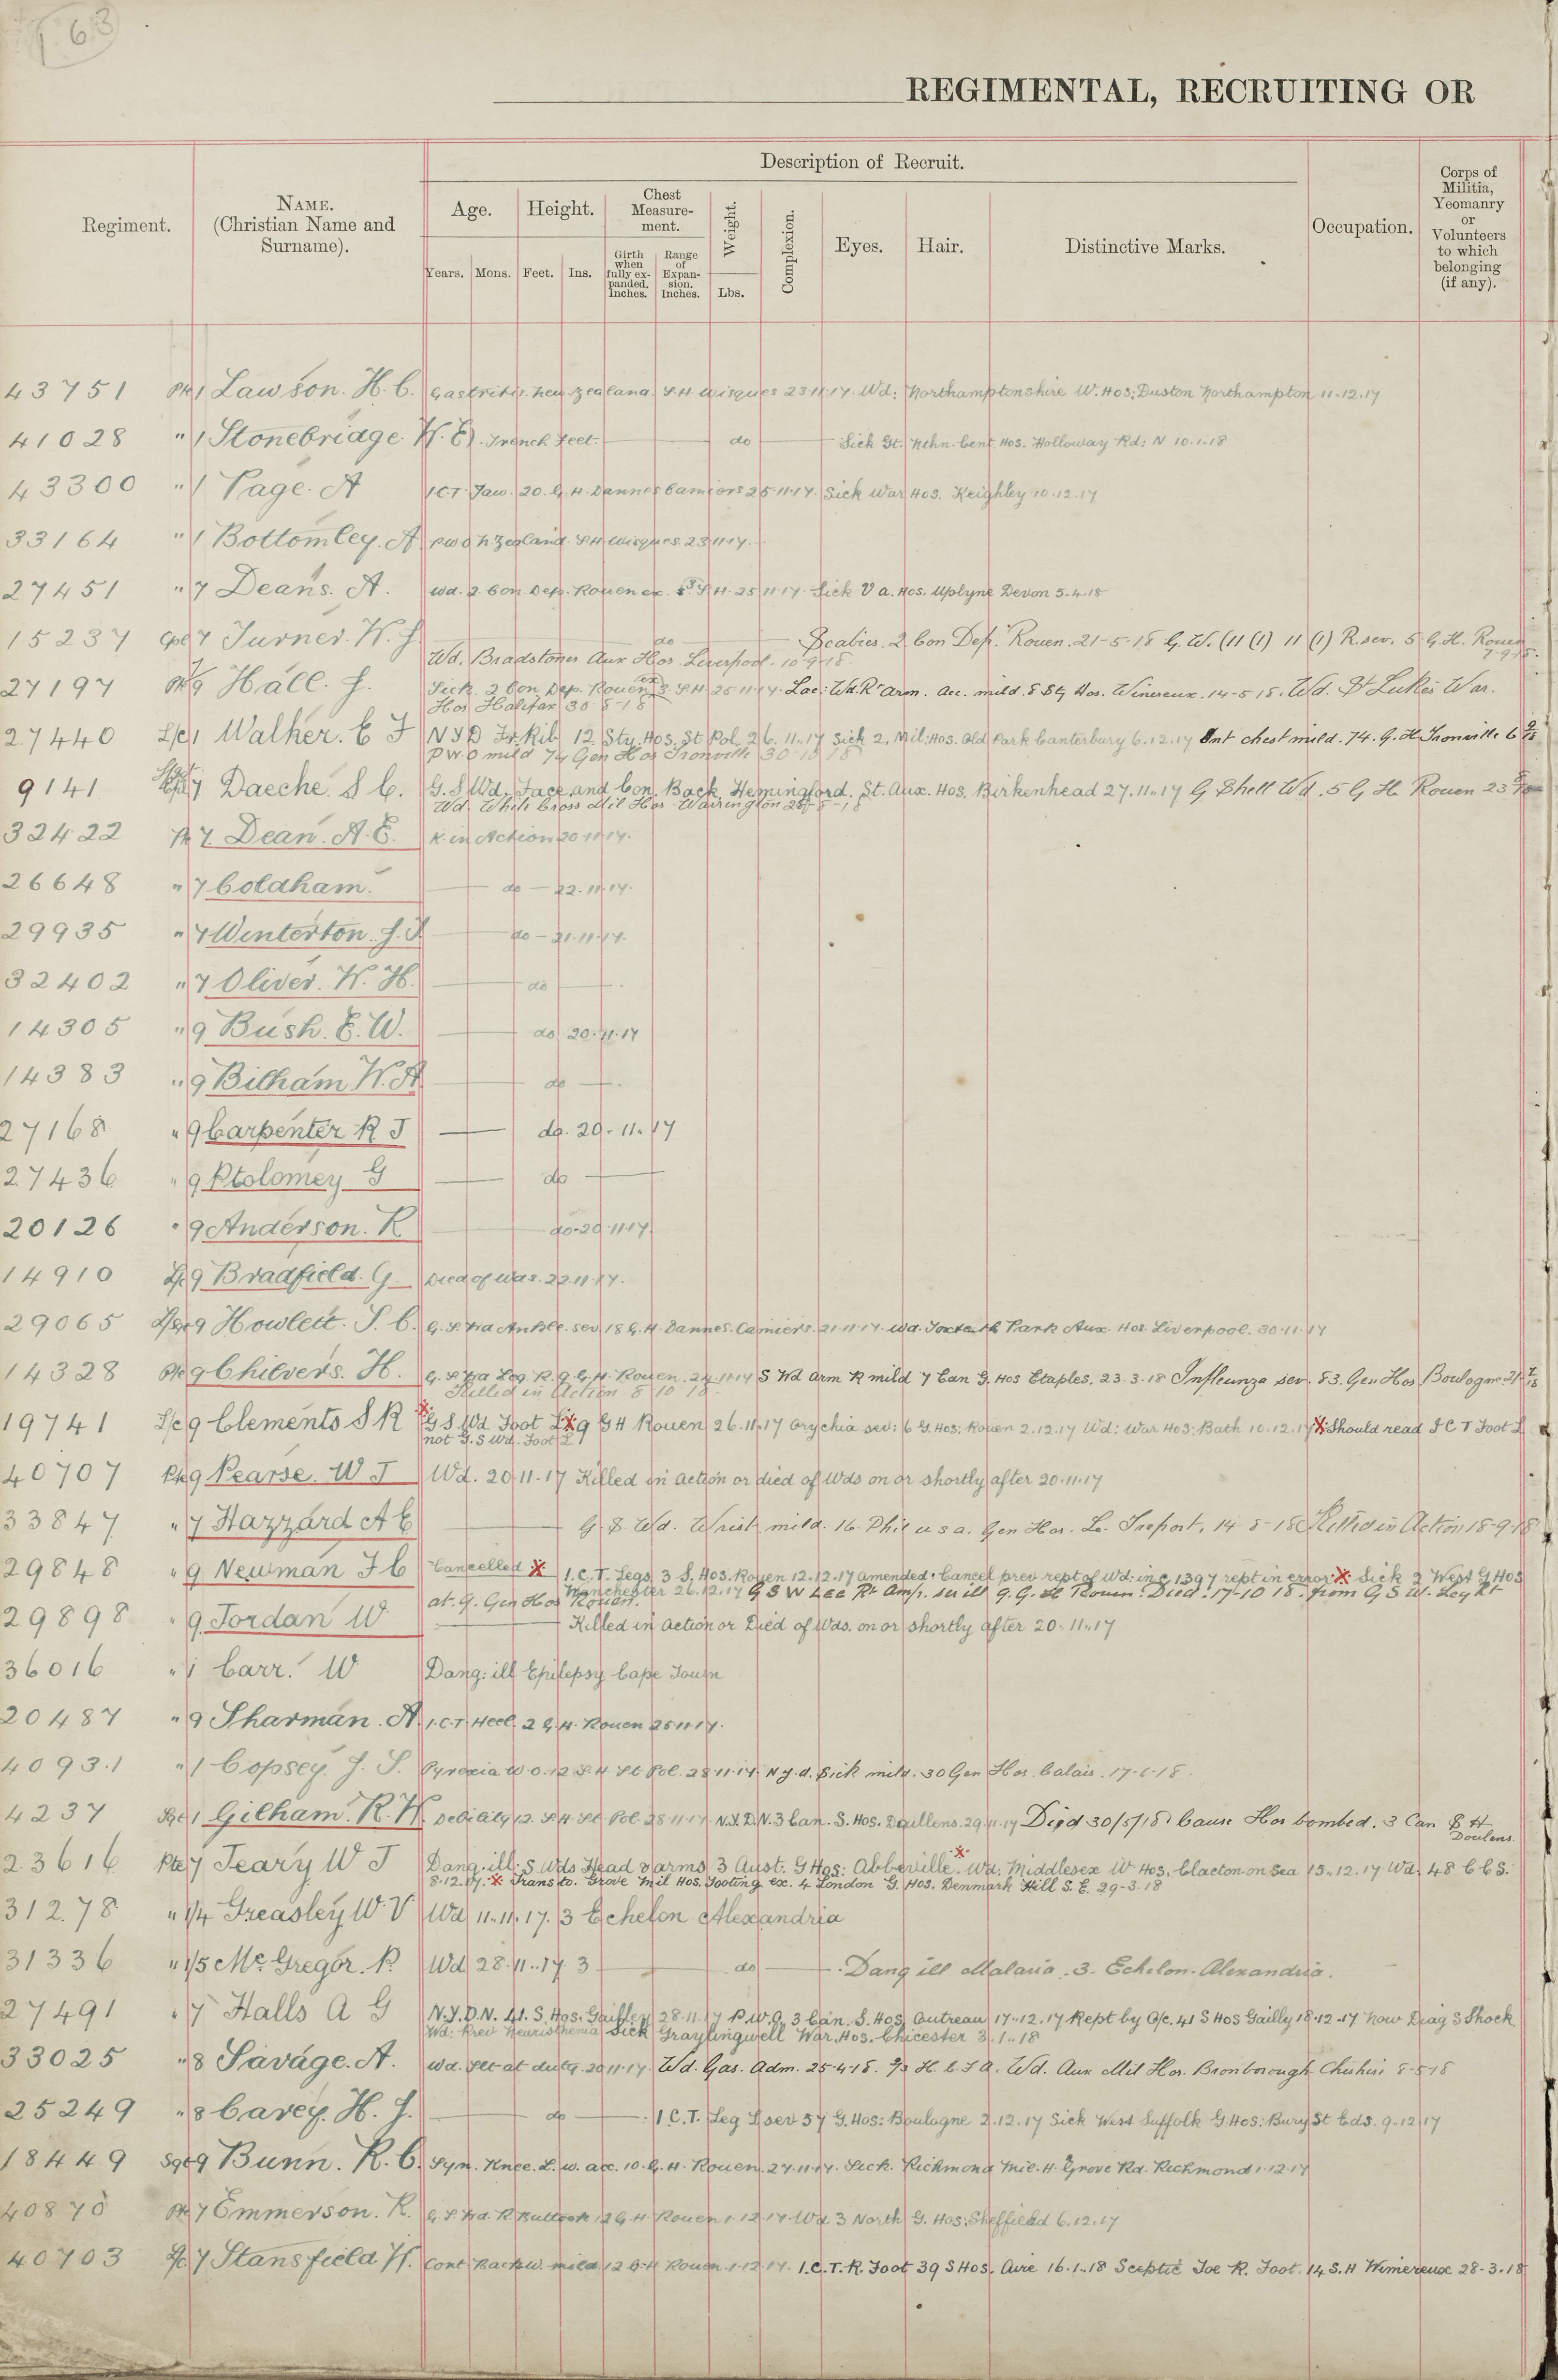 163
REGIMENTAL, RECRUITING OR
Regiment.
NAME. (Christian Name and Surname).
Description of Recruit.
Age. Years. Mons.
Height. Feet. Ins.
Chest Measure-ment. Girth when fully ex-panded. Inches. Range of Expan-sion. Inches.
Weight. Lbs.
Complexion.
Eyes.
Hair.
Distinctive Marks.
Occupation.
Corps of Militia, Yeomanry or Volunteers to which belonging (if any).
43751 Pte 1 Lawson. H. C. Gastritis. New Zealand. S H Wisques 23.11.17. Wd: Northamptonshire W. Hos; Duston Northampton 11.12.17
41028 " 1 Stonebridge. W. E. Trench Feet. do Sick Gt. Nthn. Cent Hos. Holloway Rd: N 10.1.18
43300 " 1 Page. A I.C.T. Jaw. 20. G. H. Dannes Camiers 25.11.17. Sick War Hos. Keighley 10.12.17
33164 " 1 Bottomley. A P U O N Zealand. S H Wisques. 23.11.17.
27451 " 7 Deans. A. Wd. 2. Con. Dep. Rouen ex. 3 S. H. 25.11.17. Sick V a. Hos. Uplyne Devon 5.4.18
15237 Cpl 7 Turner. W. J. do Scabies. 2 Con Dep. Rouen. 21-5-18 G. W. (11 (1) 11 (1) R. sev. 5 G. H. Rouen 7-9-18.
Wd. Bradstones Aux Hos. Liverpool. 10-9-18.
27197 Pte 9 Hall. J. Sick. 2 Con. Dep. Rouen ex 3 S H 25.11.17. Lac: Wd. Rt arm. Acc. mild. 8 Stg Hos. Wimereux. 14-5-18. Wd. St Lukes War.
Hos Halifax 30-5-18
27440 L/c 1 Walker. E F N Y D Fr. Rib 12. Sty. Hos. St Pol. 26.11.17 Sick 2. Mil: Hos. Old Park Canterbury 6.12.17 Cont chest mild. 74. G. H. Tronville 6
P U O mild 74 Gen Hos Tronville 30-10-18
9141 7 Daeche. S C. G. S Wd. Face and Con. Back. Hemingford. St. Aux. Hos. Birkenhead 27.11.17 G Shell Wd. 5 G H Rouen 23
Wd. White Cross Mil Hos. Warrington 28-8-18
32422 Pte 7. Dean. A. E. K. in Action 20.11.17.
26648 " 7 Coldham. do 22.11.17.
29935 " 7 Winterton. J. J. do 21.11.17.
32402 " 7 Oliver. W. H. do
14305 " 9 Bush. E. W. do 20.11.17
14383 " 9 Bilham W. A do
27168 " 9 Carpenter R J do. 20.11.17
27436 " 9 Ptolomey G do
20126 " 9 Anderson. R do 20.11.17.
14910 L/c 9 Bradfield. G. Died of Wds. 22.11.17.
29065 9 Howlett. S. C. G. S. Wd Ankle. sev. 18 G. H. Dannes. Camiers. 21.11.17. Wd. Toxteth Park Aux. Hos. Liverpool. 30.11.17
14328 Pte 9 Chilvers. H. G. S. Wd Leg R. 9. G. H. Rouen. 24.11.17 S Wd arm R mild 7 Can G. Hos Etaples. 23.3.18 Influenza sev. 83. Gen Hos Boulogne 21
Killed in Action 8-10-18.
19741 L/c 9 Clements S R G S Wd Foot L X 9 G H Rouen 26.11.17 Onychia sev: 6 G. Hos: Rouen 2.12.17 Wd: War Hos: Bath 10.12.17 X Should read I C T Foot L
not G. S Wd. Foot L
40707 Pte 9 Pearse. W J Wd. 20.11.17 Killed in action or died of Wds on or shortly after 20.11.17
33847 " 7 Hazzard A E G. S. Wd. Wrist mild. 16. Phil u s a. Gen Hos. Le. Treport. 14-8-18 Killed in Action 18-9-18
29848 " 9 Newman F C Cancelled X I. C. T. Legs. 3 S. Hos. Rouen 12.12.17 amended. Cancel prev rept of Wd. in C 1397 rept in error X Sick 2 West G Hos
Manchester 26.12.17 G S W Leg Rt Amp. se ill 9. G. H Rouen. Died. 17-10-18. from G S W. Leg Rt
at. 9. Gen Hos Rouen.
29898 " 9 Jordan W Killed in action or Died of Wds. on or shortly after 20.11.17
36016 " 1 Carr. W Dang: ill Epilepsy Cape Town
20487 " 9 Sharman. A I.C.T. Heel. 2 G. H. Rouen 25.11.17.
40931 " 1 Copsey. J. S. Pyrexia U. O. 12 S. H. St Pol. 28.11.17. N. y. d. Sick mild. 30 Gen Hos. Calais. 17-6-18.
4237 Sgt 1 Gilham. R. W. Debility 12. S. H St. Pol. 28.11.17. N. Y. D. N. 3 Can. S. Hos. Doullens. 29.11.17 Died 30/5/18 Cause Hos bombed. 3 Can S H
Doulens.
23616 Pte 7 Teary W J Dang. ill: S Wds Head & arms 3 Aust. G Hos: Abbeville. X Wd. Middlesex W Hos. Clacton on Sea 15.12.17 Wd. 48 C C S.
8.12.17. X Trans to. Grove Mil Hos. Tooting. ex. 4 London G. Hos. Denmark Hill S. E. 29-3-18
31278 " 1/4 Greasley W. V Wd 11.11.17. 3 Echelon Alexandria
31336 " 1/5 Mc Gregor. R. Wd 28.11.17. 3 do Dang ill Malaria. 3. Echelon. Alexandria.
27491 " 7 Halls A G N. Y. D. N. 41. S. Hos. Gailley 28.11.17 P. U. O. 3 Can. S. Hos. Outreau 17.12.17 Rept by O/c. 41 S Hos Gailly 18.12.17 now Diag S Shock
Wd: Prev Neuristhenia Sick Graylingwell War. Hos. Chicester 3.1.18
33025 " 8 Savage. A. Wd. Slt at duty. 20.11.17. Wd. Gas. Adm. 25-4-18. 2/3 H. C. F A. Wd. Aux Mil Hos. Bromborough Cheshire 8-5-18
25249 " 8 Carey. H. J. do I C. T. Leg L sev 57 G. Hos: Boulogne 2.12.17 Sick West Suffolk G. Hos: Bury St Eds. 9.12.17
18449 Sgt 9 Bunn. R. C. Syn. Knee. L. w. acc. 10. G. H. Rouen. 27.11.17. Sick. Richmond Mil. H. Grove Rd. Richmond 1.12.17
40870 Pte 7 Emmerson. R. G. S. Wd. R Buttock 12 G. H Rouen 1.12.17. Wd 3 North G. Hos: Sheffield 6.12.17
40703 7 Stansfield H. Cont Back W. mild 12 G. H Rouen. 1.12.17. I. C. T. R. Foot 39 S Hos. Aire 16.1.18 Sceptic Toe R. Foot. 14 S. H Wimereux 28-3-18